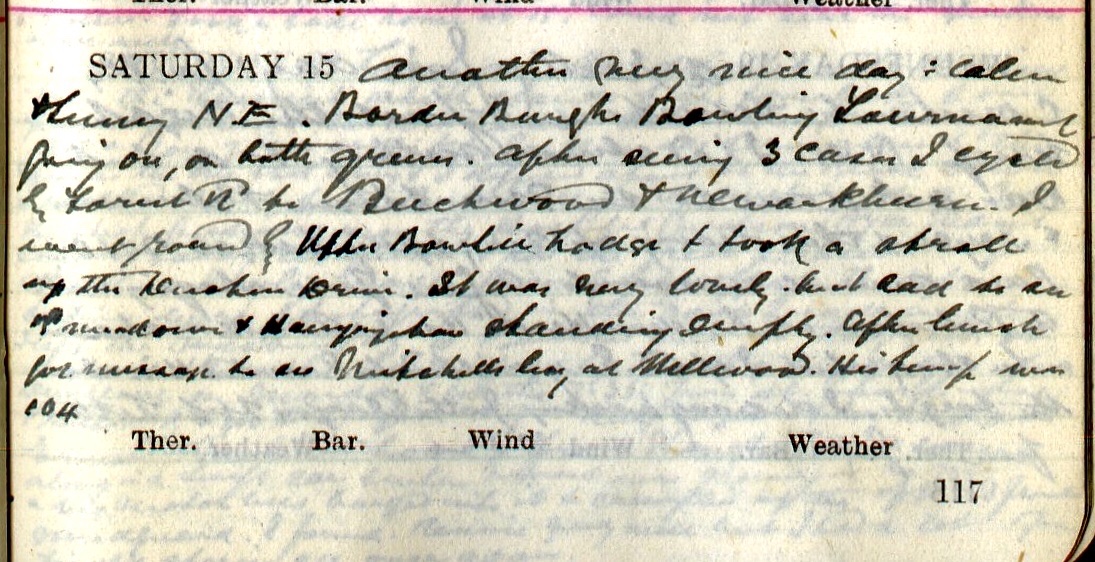 Ther. Bar. Wind Weather
SATURDAY 15 Another very nice day : calm
& sunny N.E. Border Burghs Bowling Tournament
going on, on both greens. After seeing 3 cases I cycled
by Forest Rd to Beechwood & Newarkburn. I
went round by Upper Bowhill Lodge & took a stroll
up the Duchess Drive. It was very lovely but sad to see
& Hangingshaw standing empty. After lunch
got message to see Mitchell's boy, at Millwood. His temp was
104
Ther. Bar. Wind Weather
117